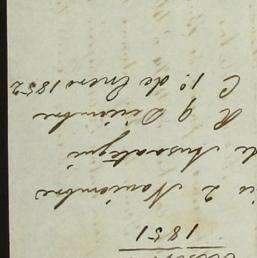 1851
2 Noviembre
de Ansoategui
R 9 Diciembre
C 1º de Enero 1852